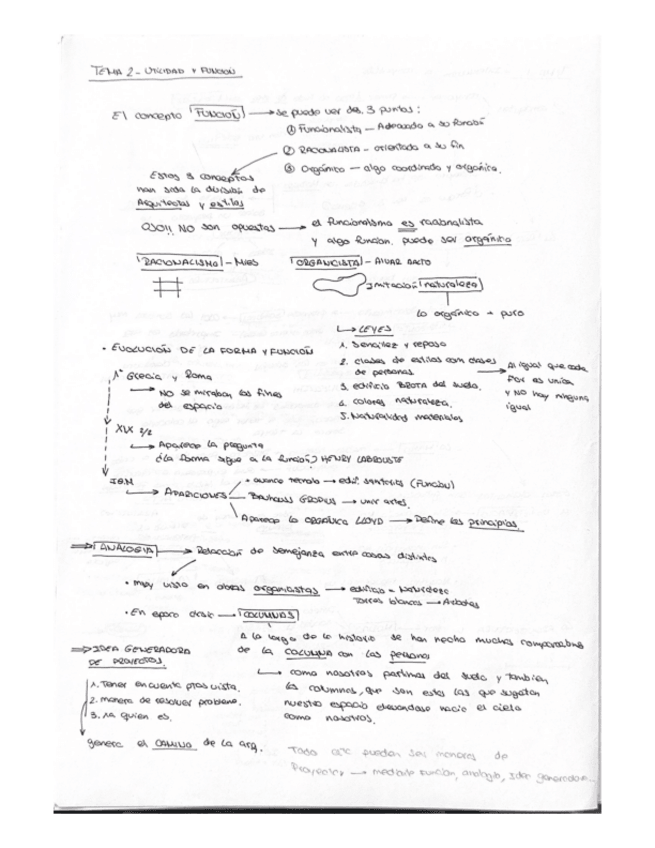 TEMA 2 - UTILIDAD Y FUNCIÓN
El concepto FUNCIÓN → se puede ver des. 3 puntos:
① Funcionalista — Adecuado a su función
② RACIONALISTA - orientado a su fin
③ Orgánico — algo coordinado y orgánico.
Estos 3 conceptos
han sido la división de
Arquitectos y estilos
OJO!! NO son opuestas → el funcionalismo es racionalista
y algo funcion. puede ser orgánico
RACIONALISMO - Mies
ORGANICISTA - ALVAR AALTO
imitación naturaleza
lo orgánico + puro
↳ LEYES
1. Sencillez y reposo
2. clases de estilos como clases
de personas. → Al igual que cada
por es unica
y NO hay ninguna
igual
3. edificio BROTA del suelo.
4. colores naturaleza.
5. Naturalidad materiales
• EVOLUCIÓN DE LA FORMA Y FUNCIÓN
1º Grecia y Roma
→ NO se miraban los fines
del espacio
XIX 2/2
↳ Aparece la pregunta
¿la forma sigue a la función? HENRY LABROUSTE
→ APARICIONES
+ avance tecnolo → edif. (Función)
BAUHAUSS GROPIUS → unir artes.
Aparece lo ORGÁNICO LLOYD → Define los principios.
⇒ ANALOGIA → Relación de semejanza entre cosas distintas
• muy visto en obras organicistas → edificio = Naturaleza
Torres blancas → Arboles
• En aparo desde → COLUMNAS
A lo largo de la historia se han hecho muchas comparaciones
de la COLUMNA con las personas
↳ como nosotros partimos del suelo y tambien
las columnas, que son estas las que sujetan
nuestro espacio elevandose hacia el cielo
como nosotros.
⇒ IDEA GENERADORA
DE PROYECTOS.
1. Tener en cuenta ptos vista.
2. manera de resolver problema.
3. a quien es.
genera el CAMINO de la arq.
Todo pueden ser maneras de
Proyectar → mediante función, analogía, idea generadora...